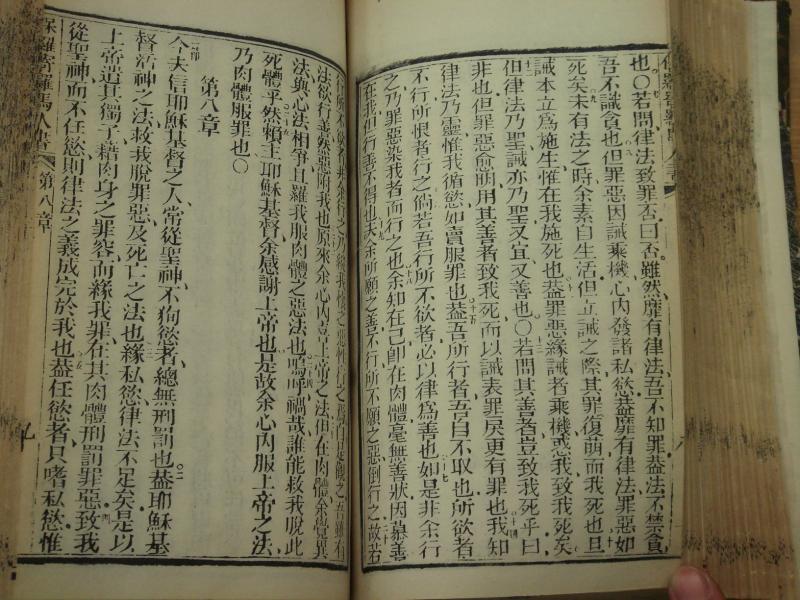 也〇若問律法致罪否曰否雖然靡有律法吾不知罪蓋法不禁貪
吾不識貪也但罪惡因誡乘機心內發諸私慾蓋靡有律法罪惡如
死矣未有法之時余素自生活但立誡之際其罪復萌而我死也且
誡本立爲施生惟在我施死也蓋罪惡緣誡者乘機惑我致我死矣
但律法乃聖誡亦乃聖又宜又善也〇若問其善者豈致我死乎曰
非也但罪惡愈明用其善者致我死而以誡表罪戾更有罪也我知
律法乃靈惟我循慾如賣服罪也蓋吾所行者吾自不取也所欲者
不行所恨者行之倘若吾行所不欲者必以律爲善也如是非余行
之乃罪惡染我者而行之也余知在己卽在肉體毫無善狀因慕善
在我但行善不得也夫余所願之善不行所不願之惡倒行之故若
法欲行善然惡附我也原來余心內喜上帝之法但在肉體余覺異
法與心法相爭且羅我服肉體之惡法也嗚呼禍哉誰能救我脫此
死體乎然賴主耶穌基督余感謝上帝也是故余心內服上帝之法
乃肉體服罪也〇
第八章
今夫信耶穌基督之人常從聖神不狥慾者總無刑罰也蓋耶穌基
督活神之法救我脫罪惡及死亡之法也緣私慾律法不足矣是以
上帝遣其獨子藉肉身之罪容而緣我罪在其肉體刑罰罪惡致我
從聖神而不任慾則律法之義成完於我也蓋任慾者只嗜私慾惟
保羅寄羅馬人書 第八章